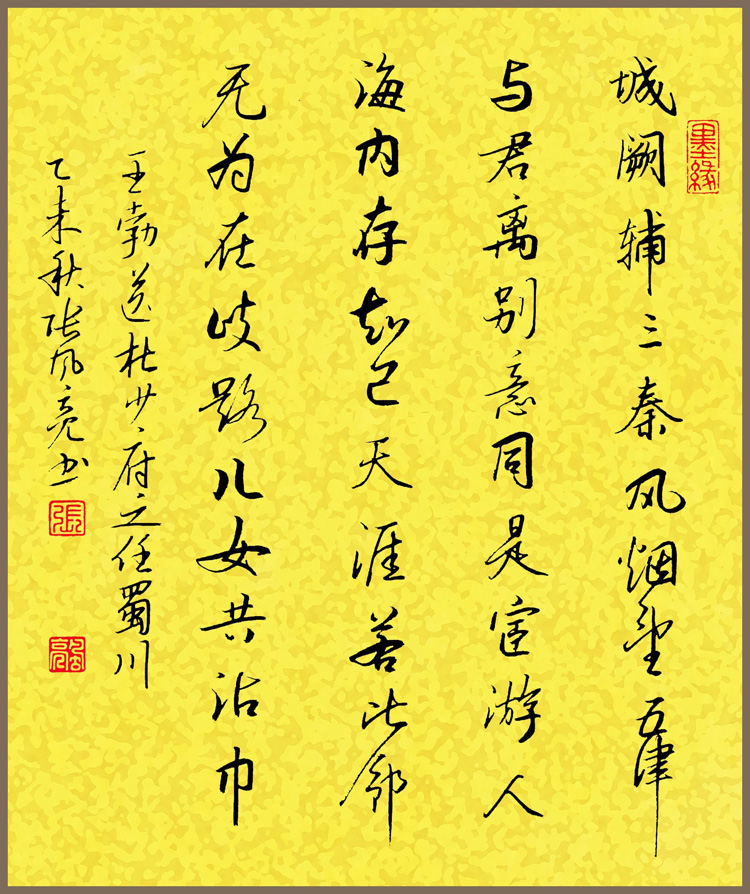 城阙辅三秦风烟望五津
与君离别意同是宦游人
海内存知己天涯若比邻
无为在歧路儿女共沾巾
王勃送杜少府之任蜀川
乙未秋张风亮书
墨缘
張